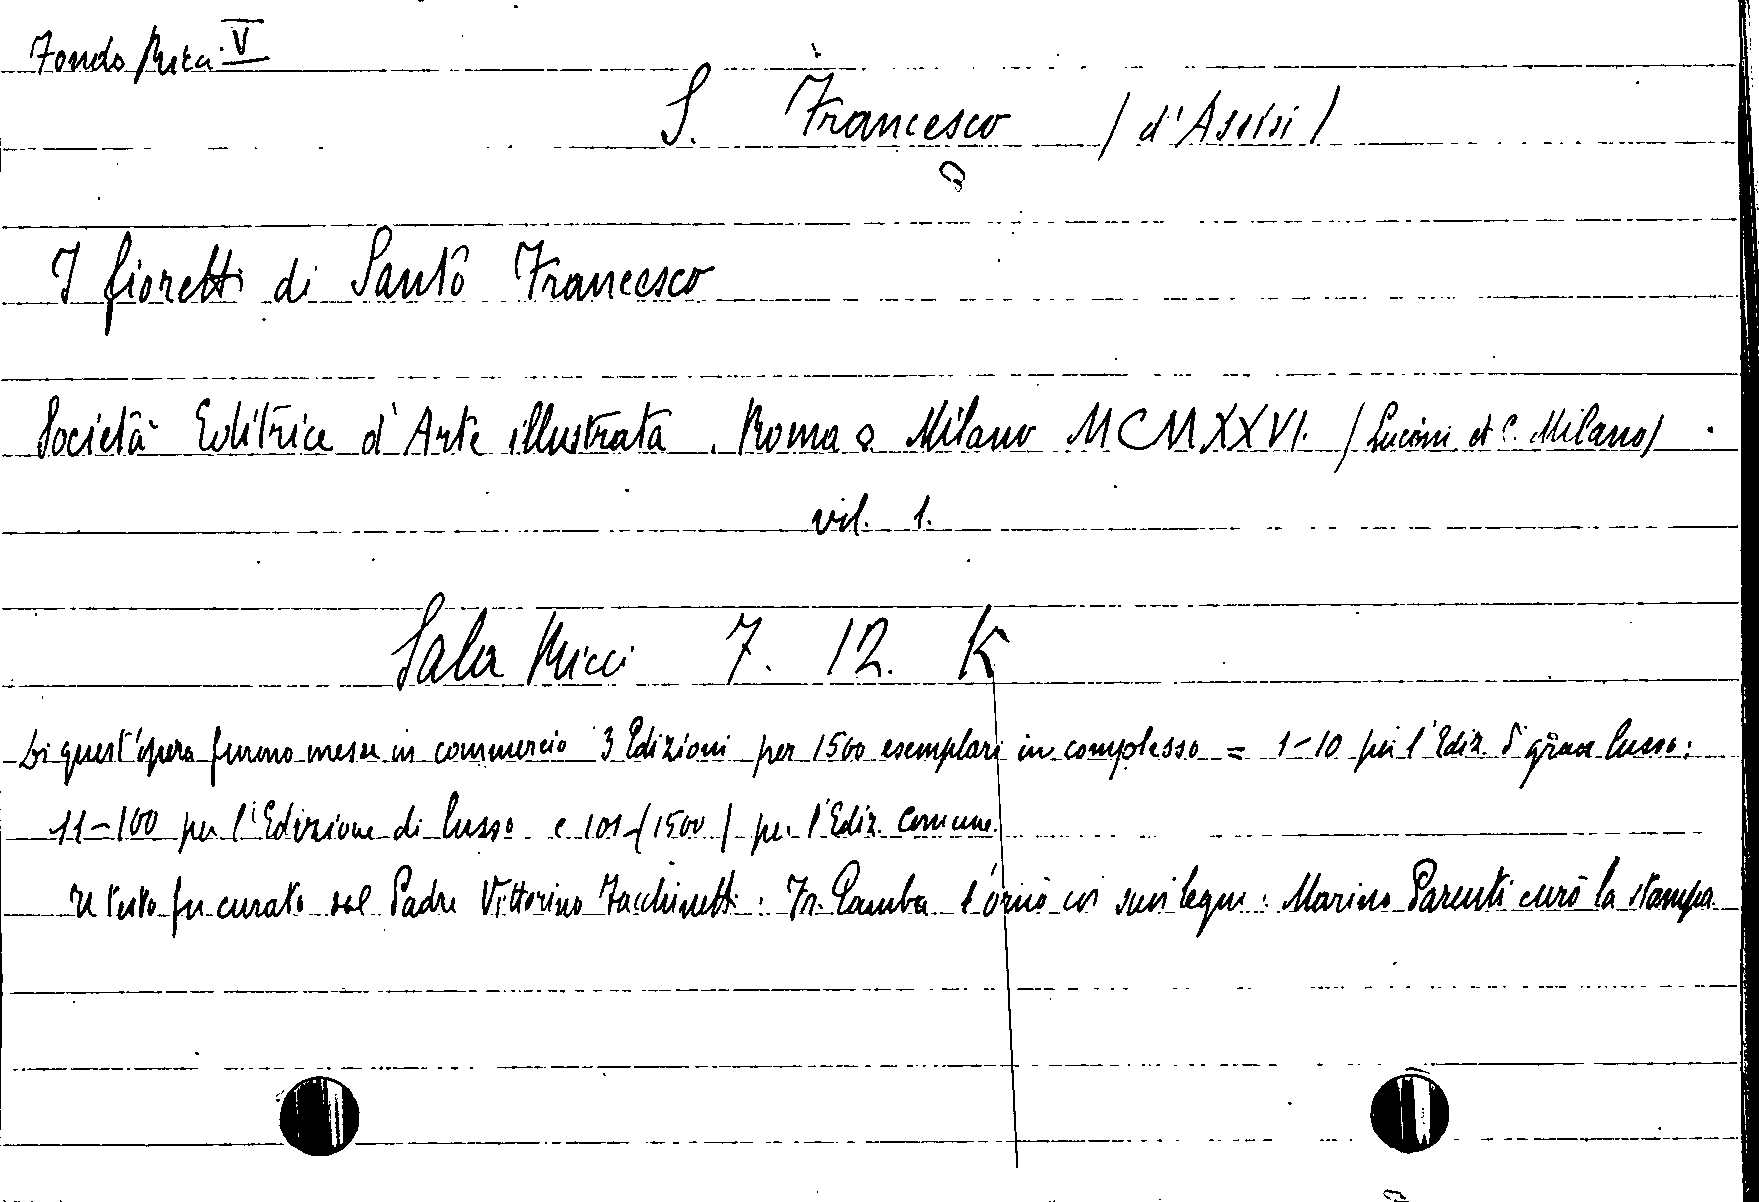 Fondo Ricci V
S. Francesco / d'Assisi /
I fioretti di Santo Francesco
Società Editrice d'Arte illustrata. Roma e Milano MCMXXVI. / Lucini et C. Milano / .
vol. 1.
Sala Ricci 7. 12. K
Di quest'opera furono messe in commercio 3 Edizioni per 1500 esemplari in complesso = 1-10 per l'Ediz. di gran lusso:
11-100 per l'Edizione di lusso e 101-/1500/ per l'Ediz. comune.
Il testo fu curato dal Padre Vittorino Facchinetti: Fr. Gamba l'ornò coi suoi legni: Marino Parenti curò la stampa.